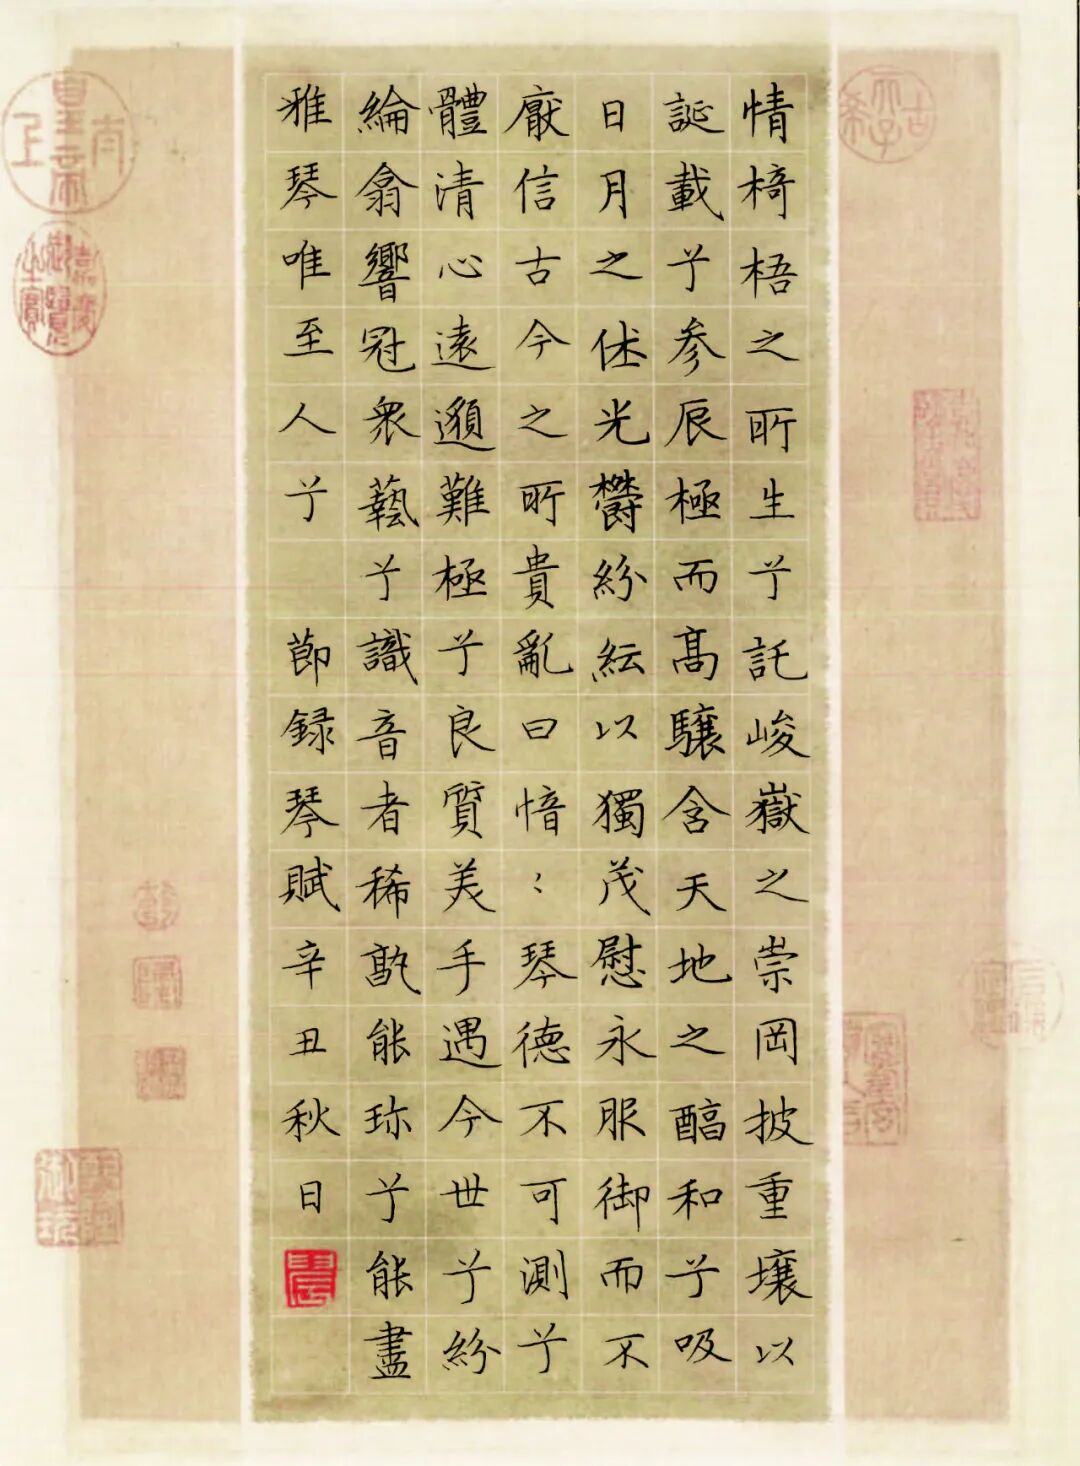 情椅梧之所生兮託峻嶽之崇岡披重壤以
誕載兮参辰極而高驤含天地之醕和兮吸
日月之休光欝紛紜以獨茂慰永服御而不
厭信古今之所貴亂曰愔〻琴德不可測兮
體清心遠邈難極兮良質美手遇今世兮紛
綸翕響冠衆藝兮識音者稀孰能珎兮能盡
雅琴唯至人兮 節録琴賦辛丑秋日